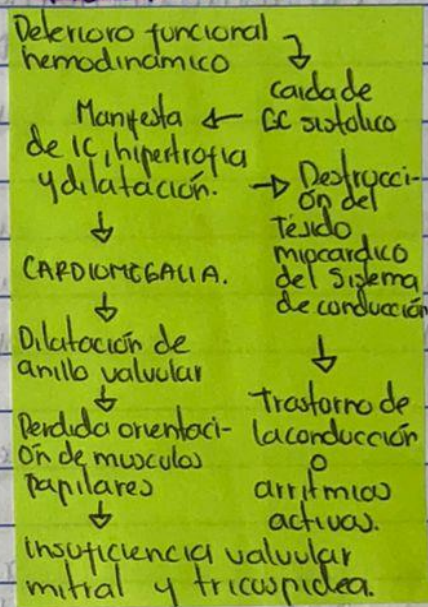 Deterioro funcional
hemodinámico
caida de
GC sistólico
Manifesta
de IC, hipertrofia
y dilatación.
Destrucci-
ón del
Tejido
miocardico
del Sistema
de conducción
CARDIOMEGALIA.
Dilatación de
anillo valvular
Perdida orientaci-
ón de musculos
papilares
Trastorno de
la conducción
o
arritmias
activas.
insuficiencia valvular
mitral y tricuspidea.